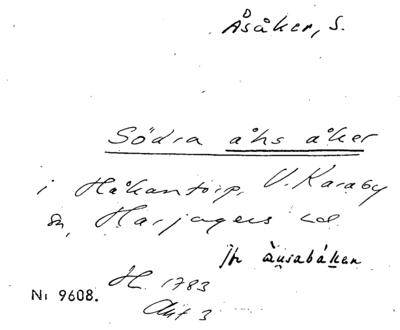 Åsåker, S.
Södra åhs åker
i Håkantorp, V. Karaby
sn, Harjagers hd
Jfr àusabáken
H. 1783
Akt 3
Nr 9608.